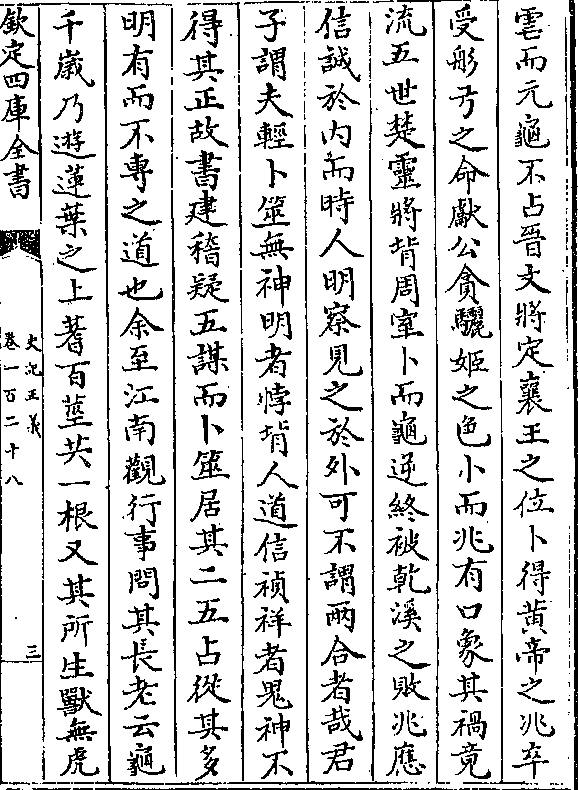 雩而元龜不占晉文將定襄王之位卜得黄帝之兆卒
受彤弓之命獻公貪驪姬之色卜而兆有口象其禍竟
流五世楚靈將背周室卜而龜逆終被乾溪之敗兆應
信誠於内而時人明察見之於外可不謂兩合者哉君
子謂夫輕卜筮無神明者悖背人道信禎祥者鬼神不
得其正故書建稽疑五謀而卜筮居其二五占從其多
明有而不專之道也余至江南觀行事問其長老云龜
千歲乃遊蓮葉之上蓍百莖共一根又其所生獸無虎
欽定四庫全書
史記正義
卷一百二十八
三